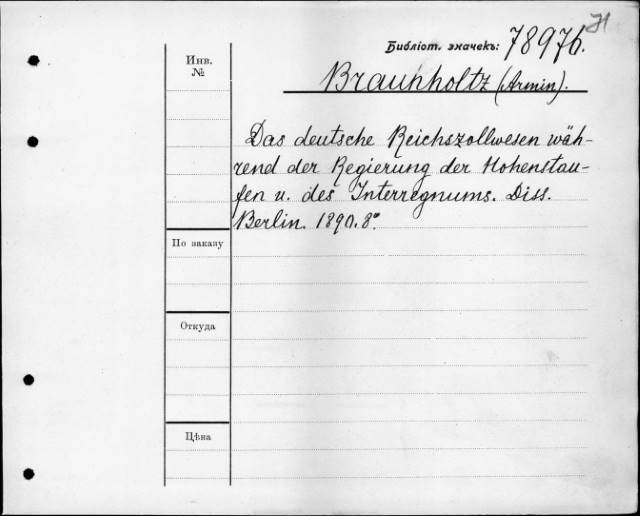 Библіот. значекъ: 78976.
Инв.
№
Braunholtz (Armin).
Das deutsche Reichszollwesen wäh-
rend der Regierung der Hohenstau-
fen u. des Interregnums. Diss.
Berlin. 1890. 8°.
По заказу
Откуда
Цѣна